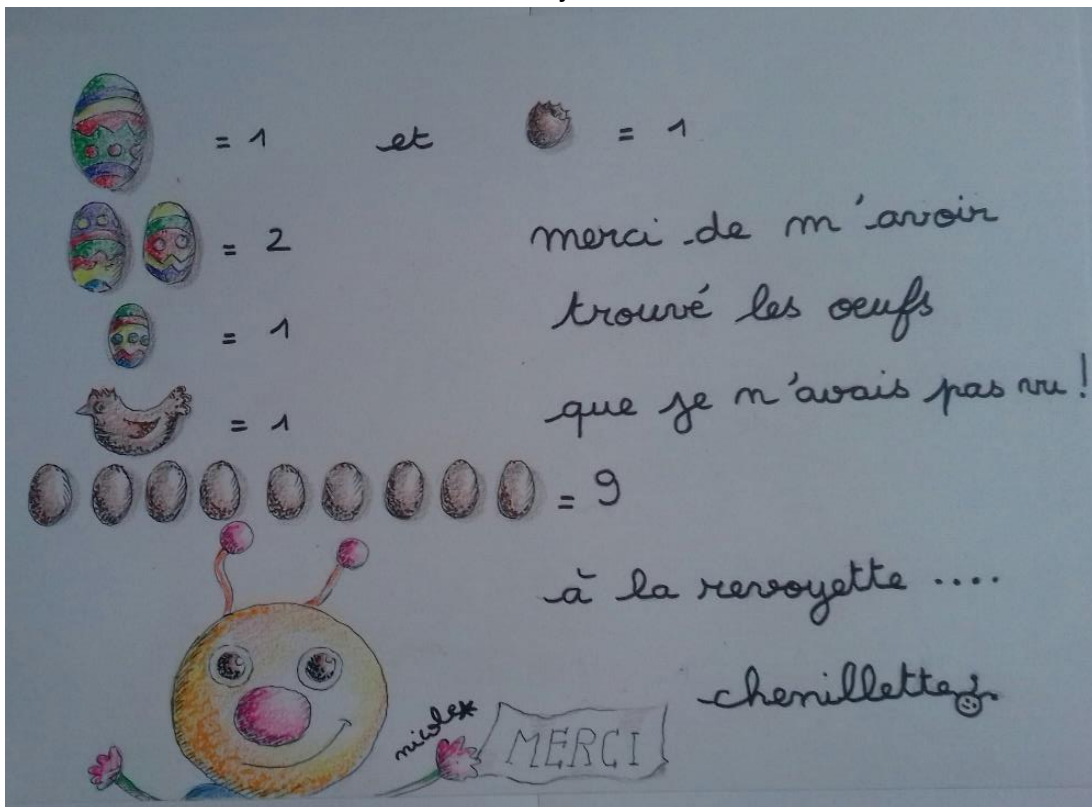 = 1 et = 1
= 2
merci de m'avoir
= 1
trouvé les oeufs
= 1
que je n'avais pas vu !
= 9
à la revoyette ....
chenillette
nicole
MERCI